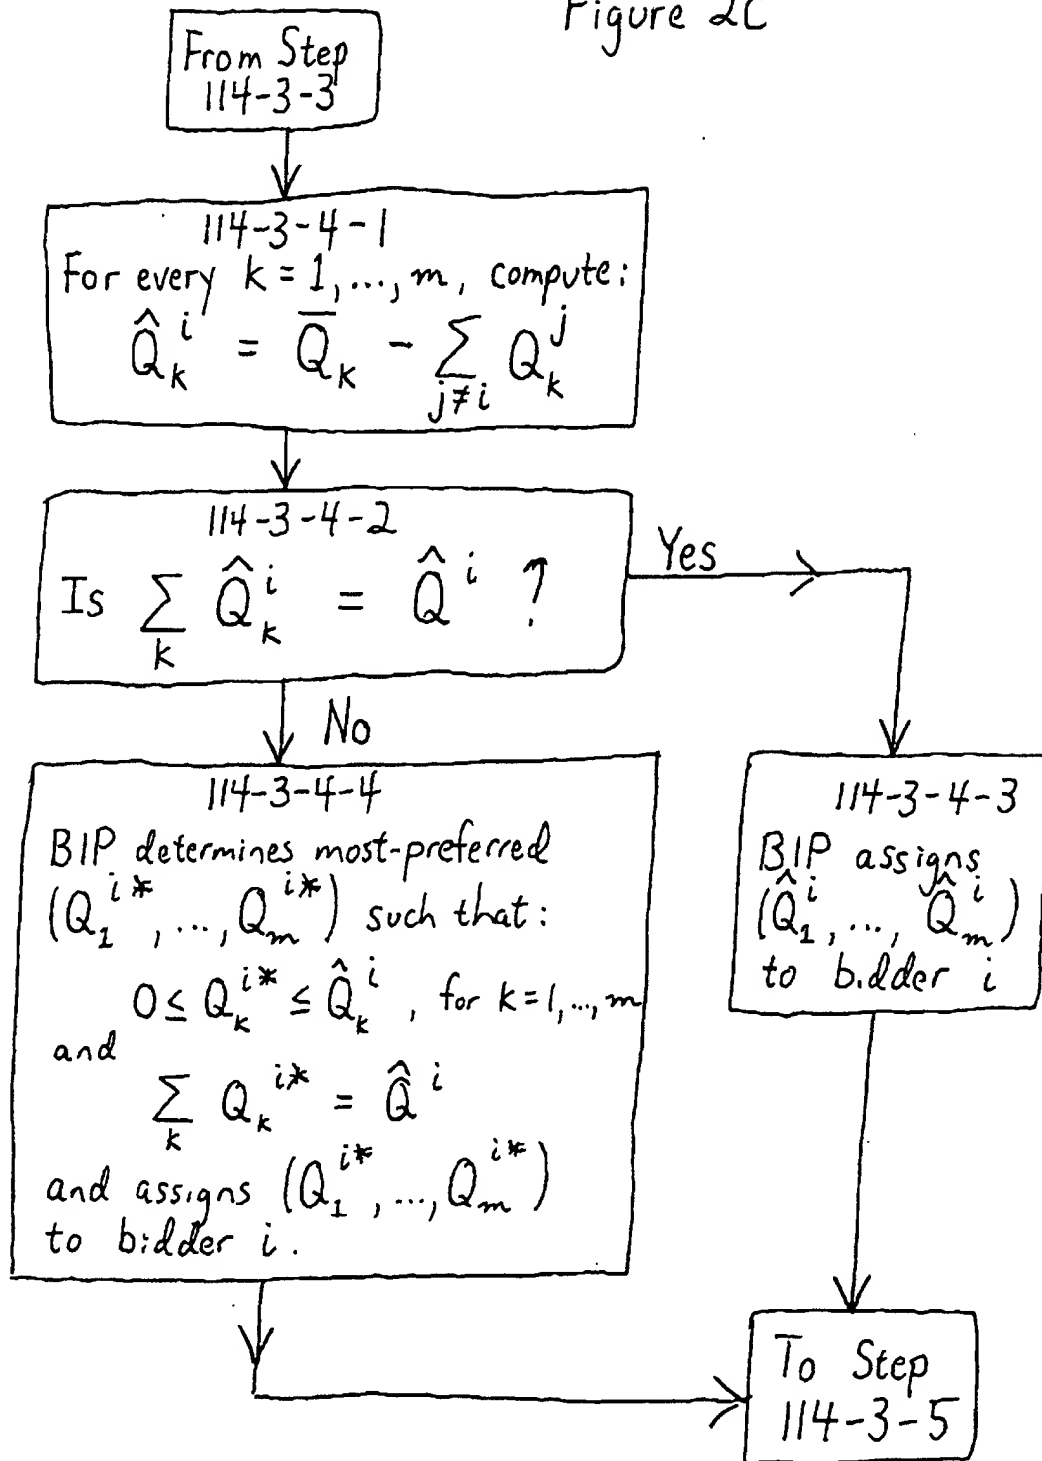 Figure 2C
From Step
114-3-3
114-3-4-1
For every k = 1, ..., m, compute:
Q̂_k^i = Q̅_k - ∑_{j≠i} Q_k^j
114-3-4-2
Is ∑_k Q̂_k^i = Q̂^i ?
Yes
No
114-3-4-4
BIP determines most-preferred
(Q_1^{i*}, ..., Q_m^{i*}) such that:
0 ≤ Q_k^{i*} ≤ Q̂_k^i , for k = 1, ..., m
and
∑_k Q_k^{i*} = Q̂^i
and assigns (Q_1^{i*}, ..., Q_m^{i*})
to bidder i.
114-3-4-3
BIP assigns
(Q̂_1^i, ..., Q̂_m^i)
to bidder i
To Step
114-3-5